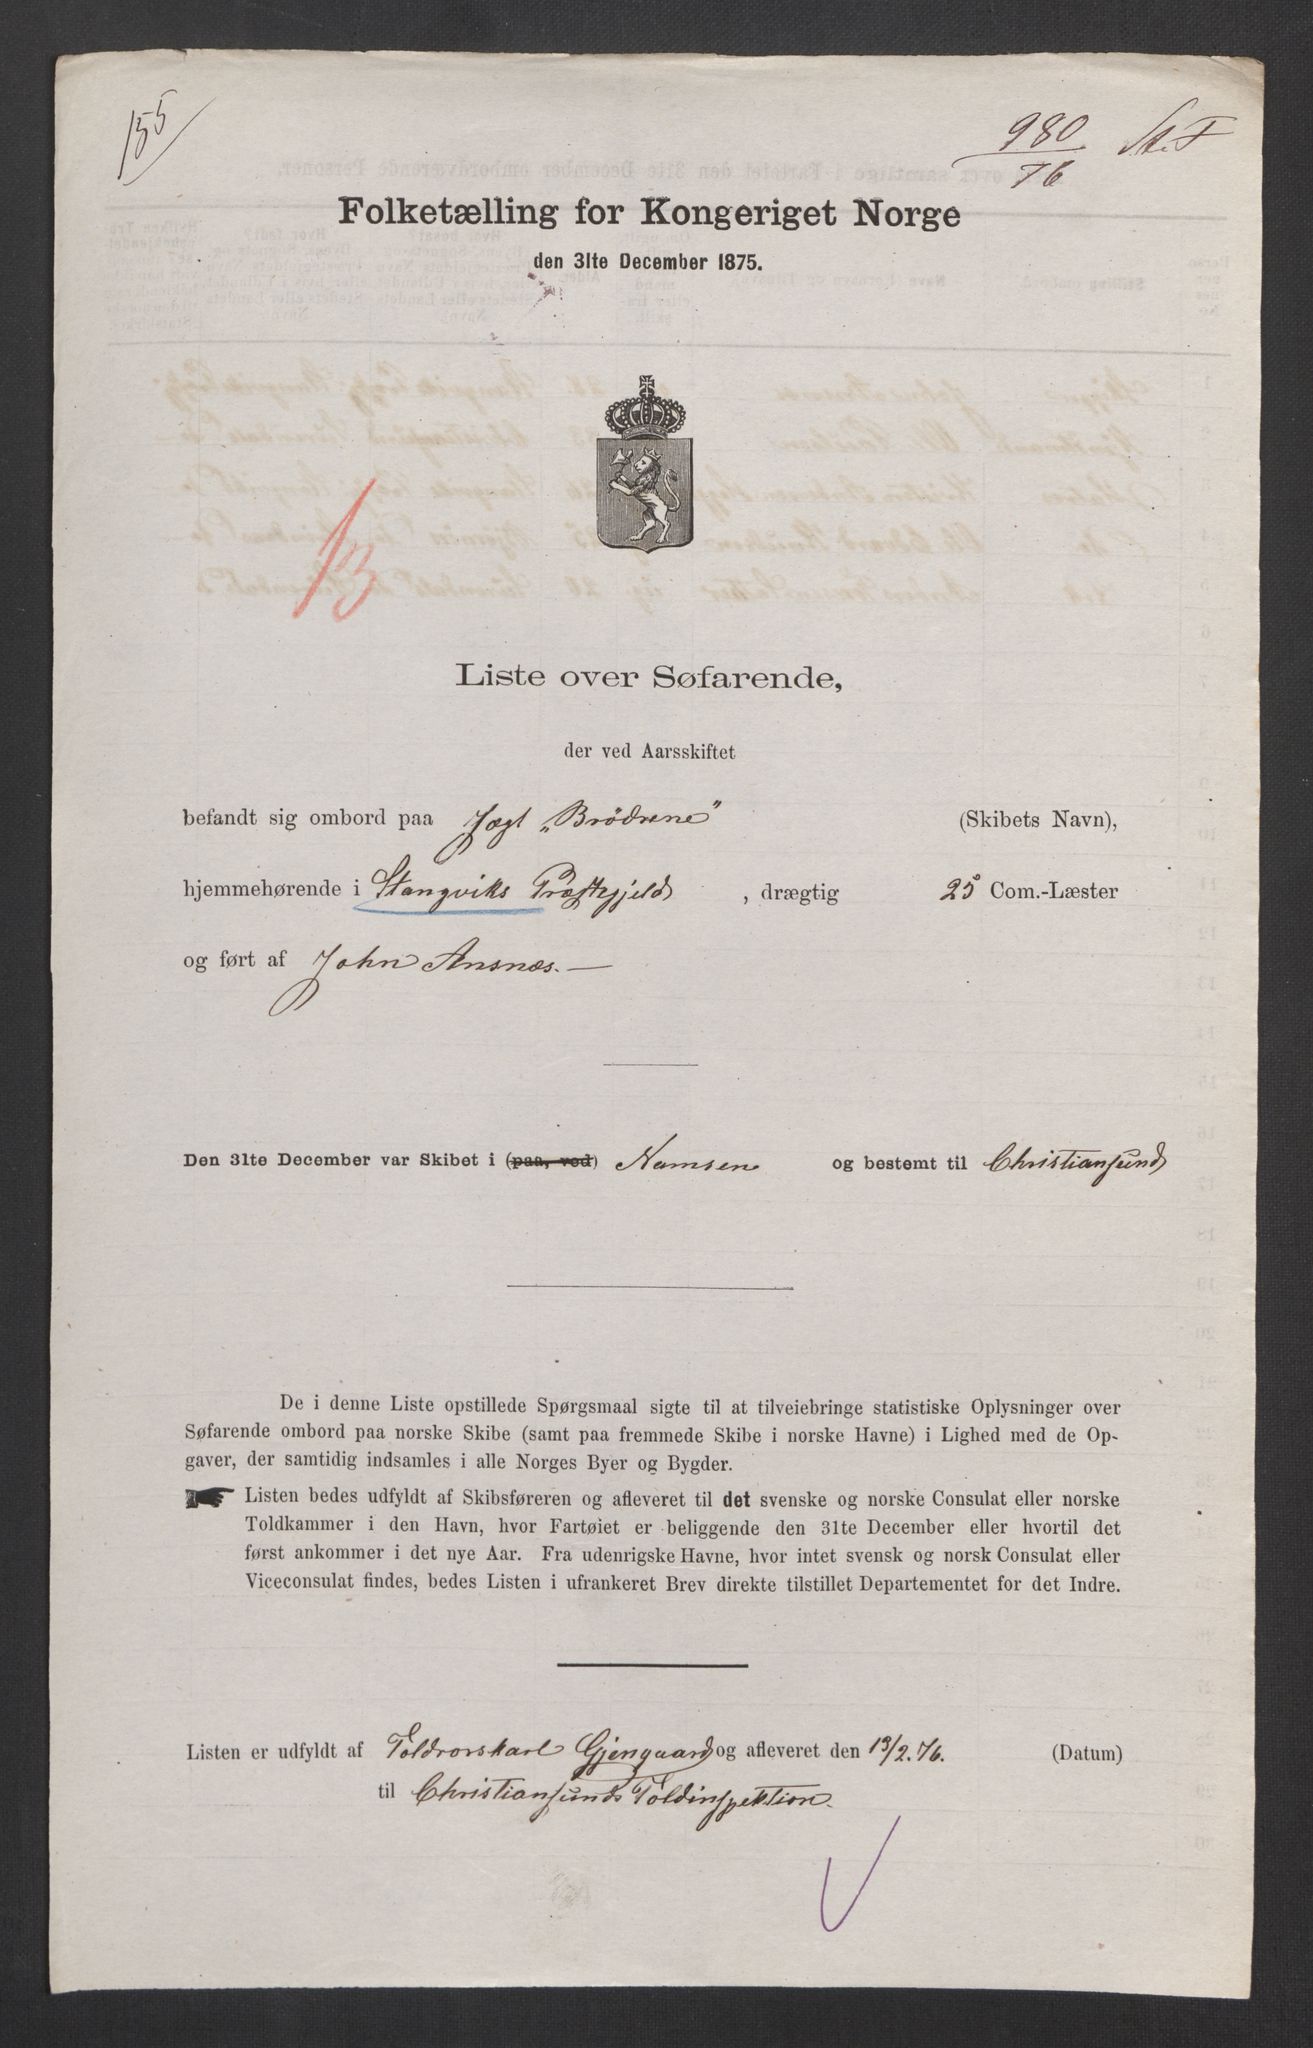 155
980 St. F
76
Folketælling for Kongeriget Norge
den 31te December 1875.
13
Liste over Søfarende,
der ved Aarsskiftet
befandt sig ombord paa Jægt „Brödrene” (Skibets Navn),
hjemmehørende i Stangviks Præstegjeld , drægtig 25 Com.-Læster
og ført af John Ansnæs. —
Den 31te December var Skibet i (paa, ved) Namsen og bestemt til Christiansund
De i denne Liste opstillede Spørgsmaal sigte til at tilveiebringe statistiske Oplysninger over
Søfarende ombord paa norske Skibe (samt paa fremmede Skibe i norske Havne) i Lighed med de Op-
gaver, der samtidig indsamles i alle Norges Byer og Bygder.
Listen bedes udfyldt af Skibsføreren og afleveret til det svenske og norske Consulat eller norske
Toldkammer i den Havn, hvor Fartøiet er beliggende den 31te December eller hvortil det
først ankommer i det nye Aar. Fra udenrigske Havne, hvor intet svensk og norsk Consulat eller
Viceconsulat findes, bedes Listen i ufrankeret Brev direkte tilstillet Departementet for det Indre.
Listen er udfyldt af Toldrorskarl Gjengaard og afleveret den 13/2.76. (Datum)
til Christiansunds Toldinspektion.